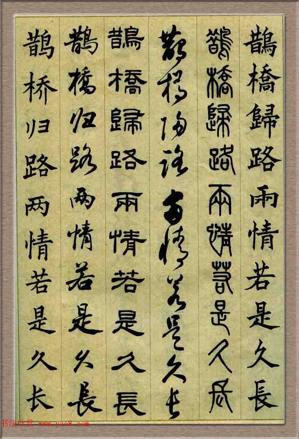 鵲橋歸路兩情若是久長
鵲橋歸路兩情若是久長
鵲橋歸路兩情若是久長
鵲橋歸路兩情若是久長
鵲橋归路兩情若是久長
鹊桥归路两情若是久长